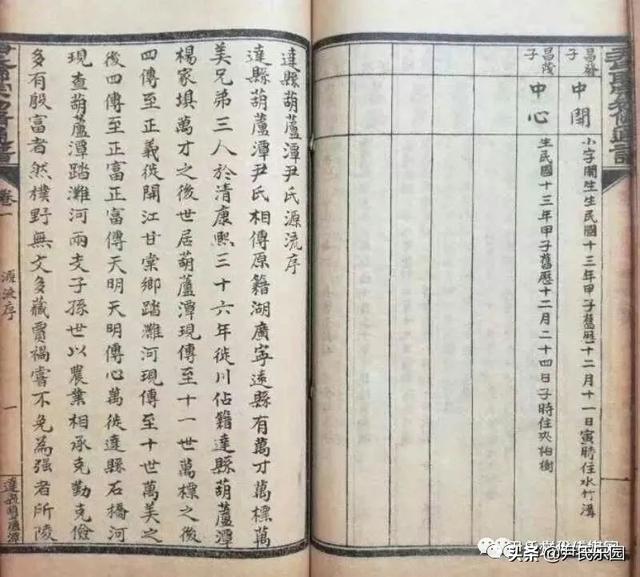 昌發子
中閏
小字閏生生民國十三年甲子舊曆十二月十一日寅時住水竹溝
昌茂子
中心
生民國十三年甲子舊曆十二月二十四日子時住夾柏樹
達縣葫蘆潭尹氏源流序
達縣葫蘆潭尹氏相傳原籍湖廣寧遠縣有萬才萬標萬
美兄弟三人於清康熙三十六年徙川佔籍達縣葫蘆潭
楊家填萬才之後世居葫蘆潭現傳至十一世萬標之後
四傳至正義徙開江甘棠鄉踏灘河現傳至十世萬美之
後四傳至正富正富傳天明天明傳心萬徙達縣石橋河
現查葫蘆潭踏灘河兩支子孫世以農業相承克勤克儉
多有殷富者然樸野無文多藏賈禍嘗不免為强者所陵
卷一
源流序
一
達縣葫蘆潭
头条 @尹氏乐园